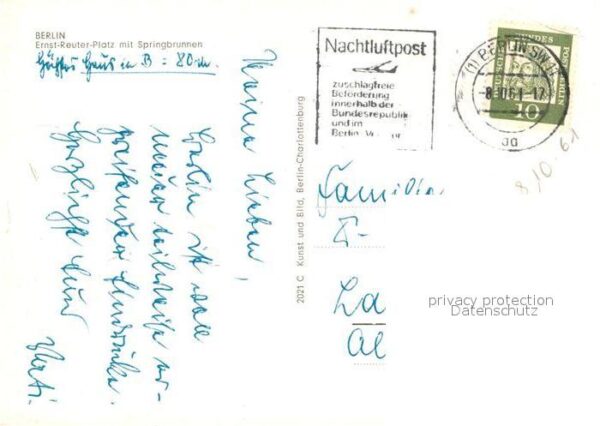 BERLIN
Ernst-Reuter-Platz mit Springbrunnen
Haus in B = 80 m.
Meine Lieben!
Berlin ist voll
neuer teilweise er-
greifender Eindrücke.
Herzlichst Euer
Vati.
2021 C Kunst und Bild, Berlin-Charlottenburg
Nachtluftpost
zuschlagfreie
Beförderung
innerhalb der
Bundesrepublik
und im
Berlin
(1) BERLIN SW 11
-8.10.61-17
DEUTSCHE BUNDESPOST BERLIN
10
8/10.61
Familie
La
Al
privacy protection
Datenschutz